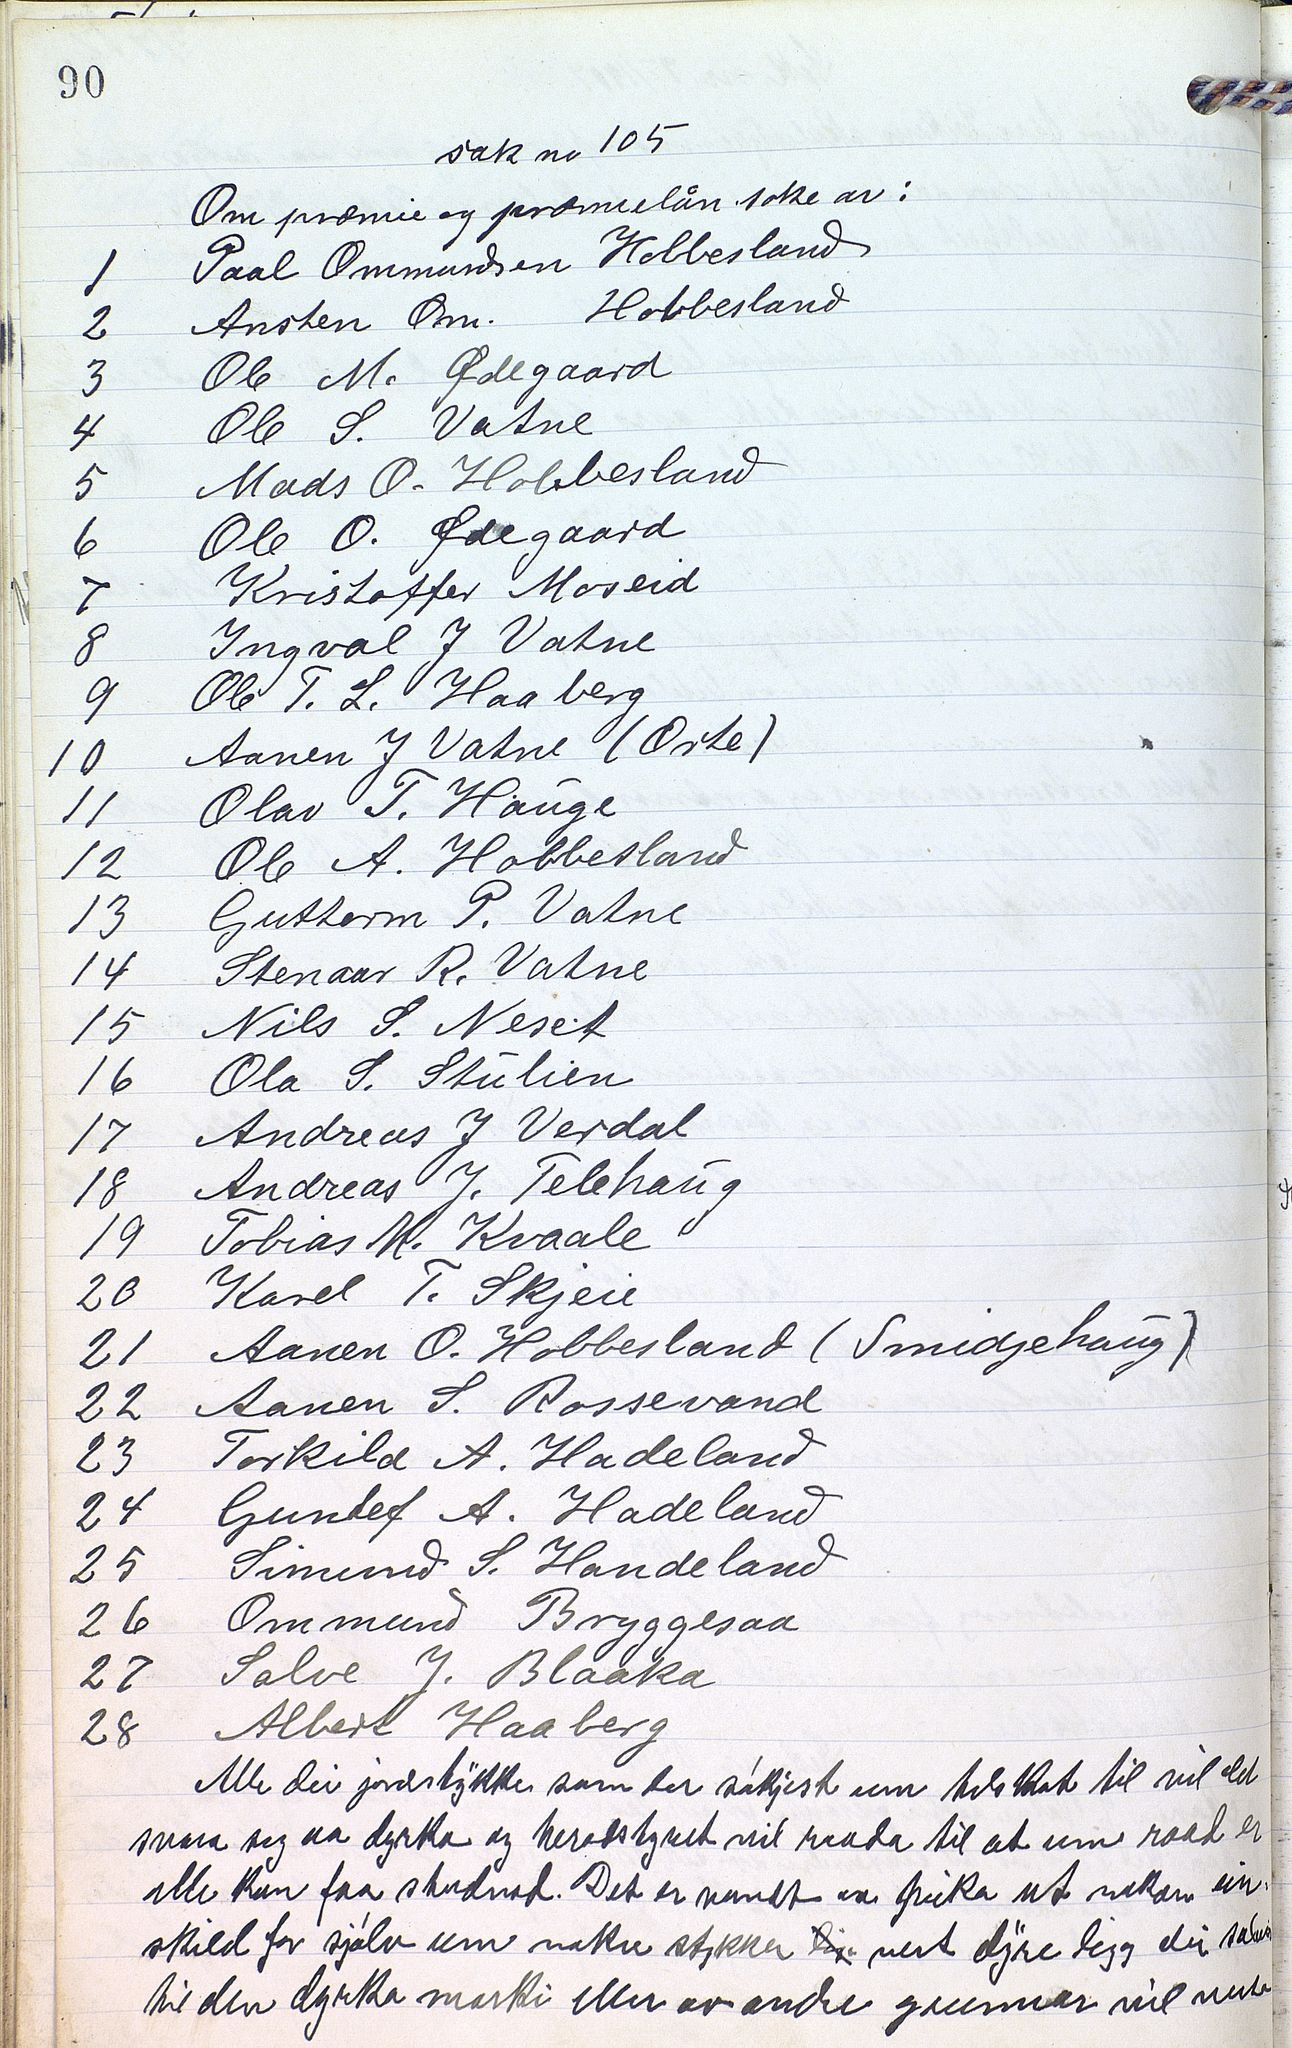 90
sak no 105
Om præmie og præmielån søke av:
1 Paal Ommundsen Hobbesland
2 Ansten Om. Hobbesland
3 Ole M. Ødegaard
4 Ole S. Vatne
5 Mads O. Hobbesland
6 Ole O. Ødegaard
7 Kristoffer Moseid
8 Ingval J Vatne
9 Ole T. L. Haaberg
10 Aanen J Vatne (Orte)
11 Olav T. Hauge
12 Ole A. Hobbesland
13 Guttorm P. Vatne
14 Stenaar R. Vatne
15 Nils S. Neset
16 Ola S. Stulien
17 Andreas J Verdal
18 Andreas J. Telehaug
19 Tobias M. Kvaale
20 Karel T. Skjeie
21 Aanen O. Hobbesland (Smidjehaug)
22 Aanen S. Rossevand
23 Torkild A. Hadeland
24 Gunlef A. Hadeland
25 Simund S. Handeland
26 Ommund Bryggesaa
27 Salve J. Blaaka
28 Albert Haaberg
Alle dei jordstykke som der søkjest um tilskot til vil
svara seg aa dyrka og heradstyret vil raada til at um raad er
alle kan faa studnad. Det er vandt aa peika ut nokon ein-
skild for sjølv um nokre stykker vert dyre ligg dei
til den dyrka marki eller av andre grunnar vil